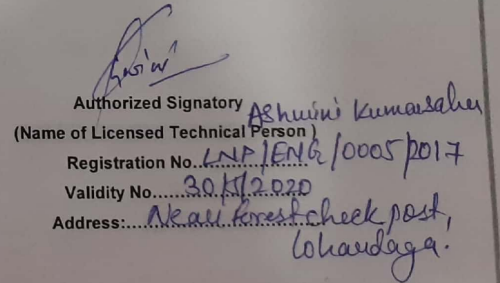 Authorized Signatory Ashwini Kumar sahu
(Name of Licensed Technical Person )
Registration No. LNP/ENG/0005/2017
Validity No. 30/5/2020
Address: Near forest check post,
Lohardaga.